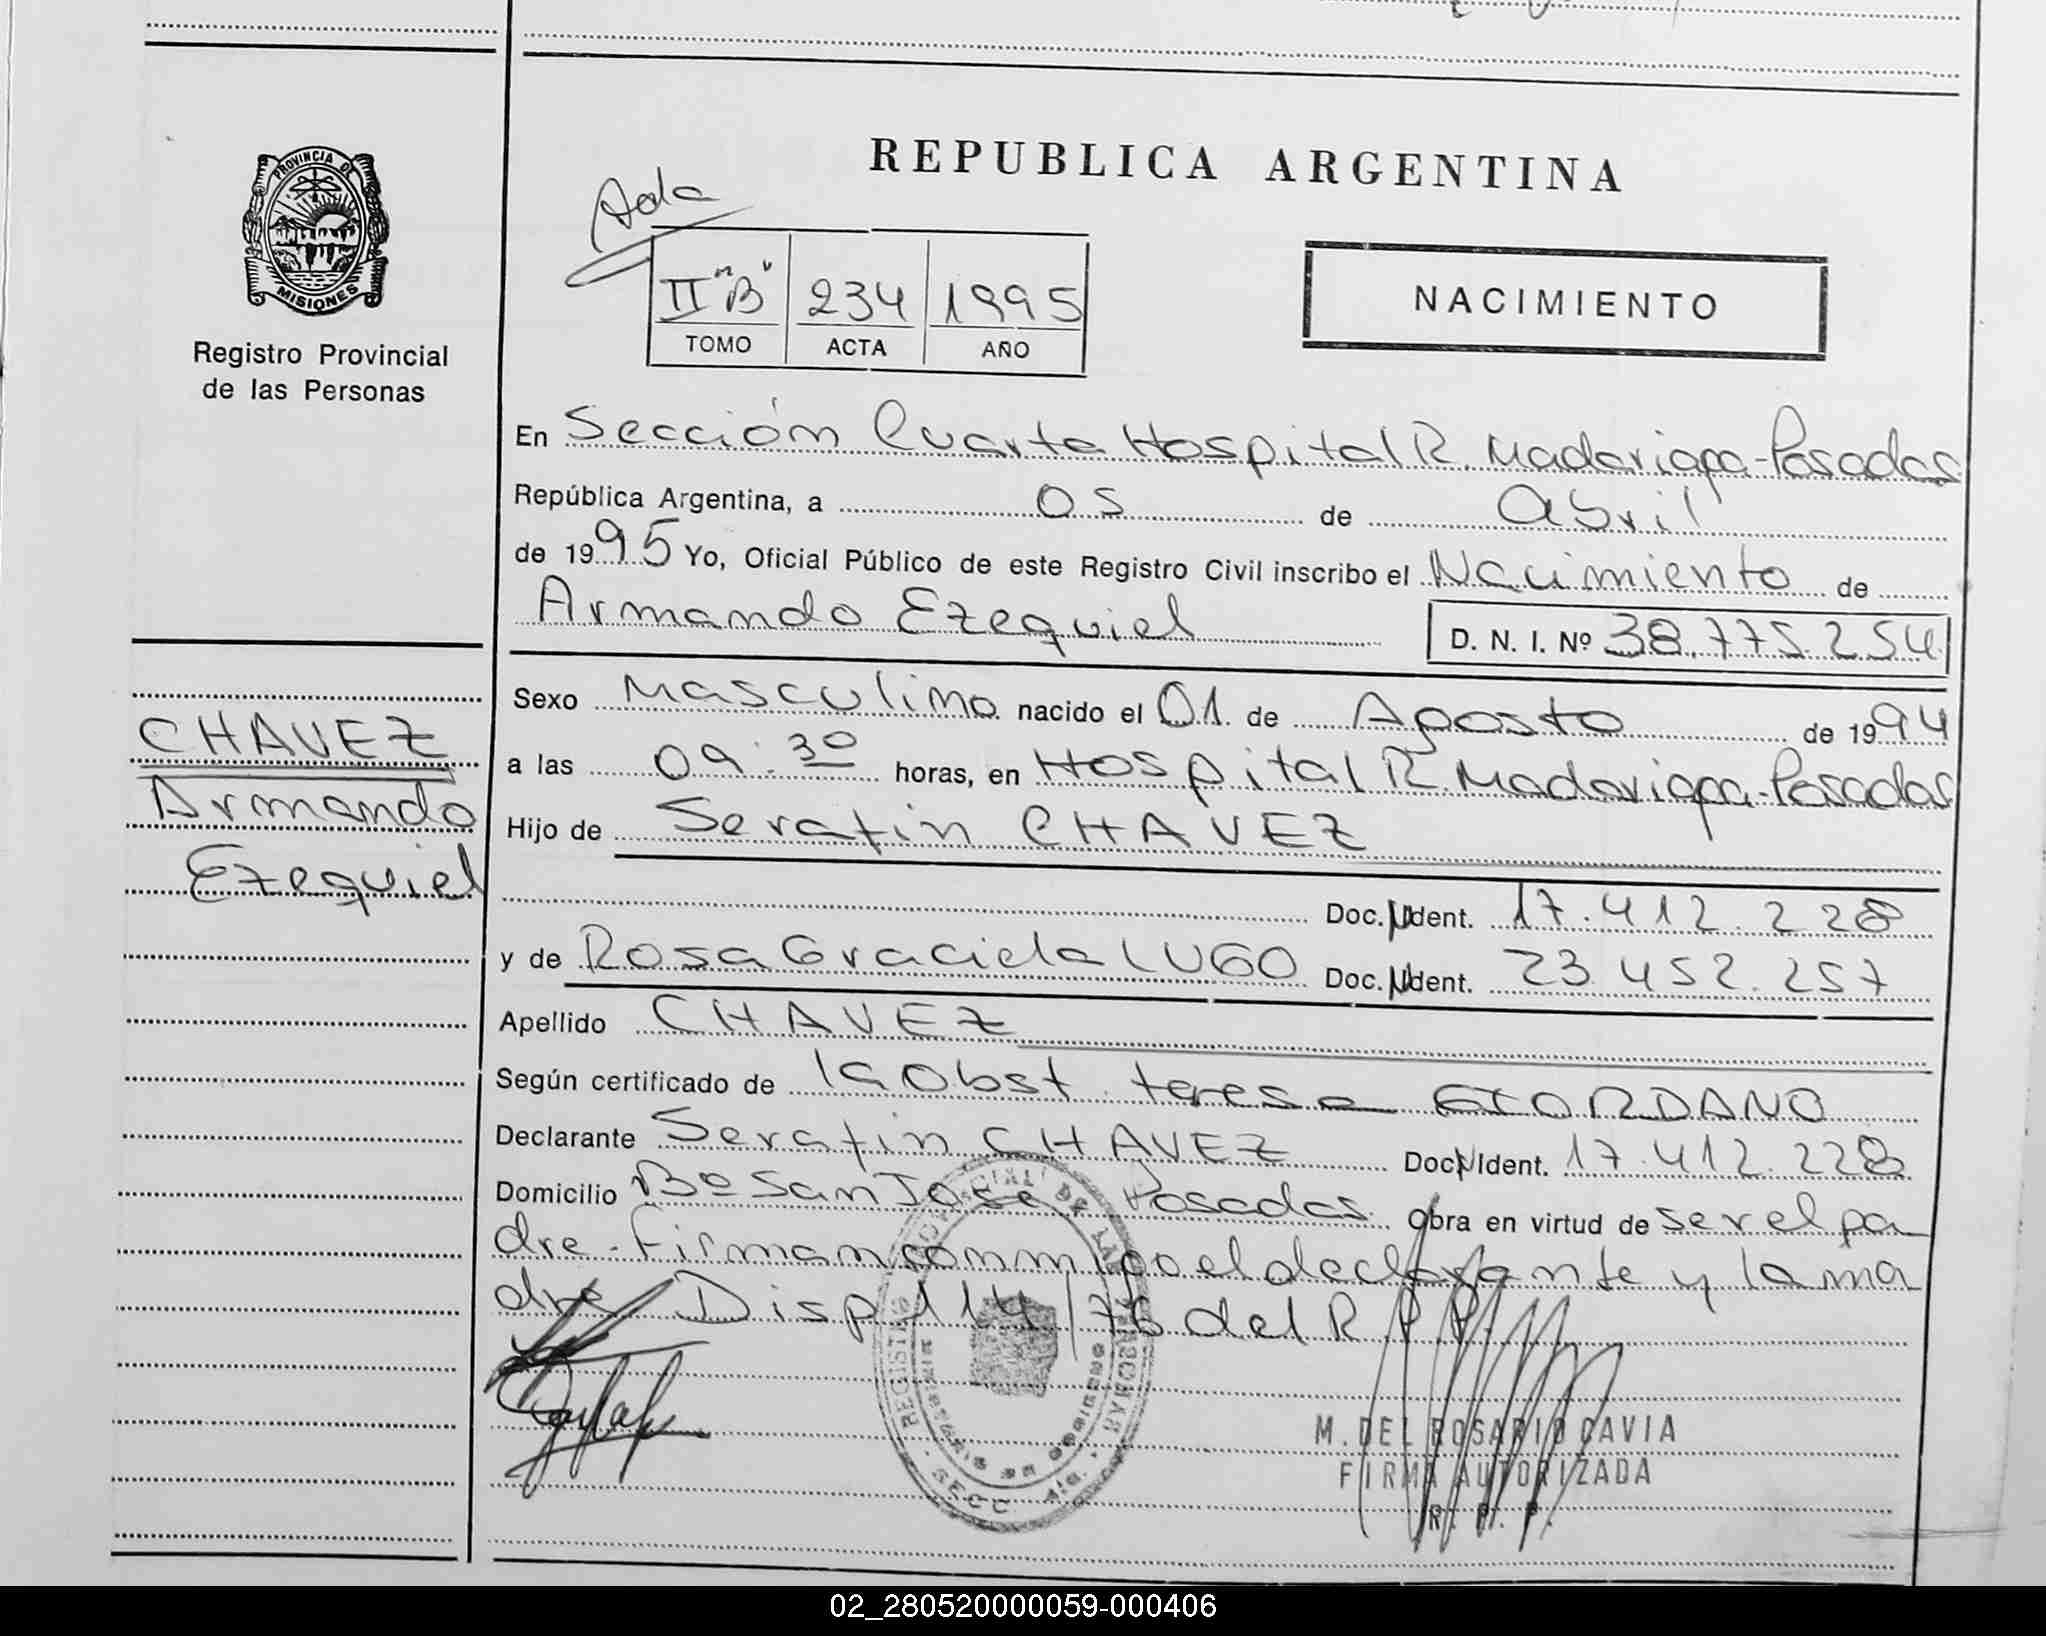 REPUBLICA ARGENTINA
PROVINCIA DE
MISIONES
Registro Provincial
de las Personas
Ada
II "B" 234 1995
TOMO ACTA AÑO
NACIMIENTO
En Sección Cuarta Hospital R. Madariaga - Posadas
República Argentina, a 05 de abril
de 1995 Yo, Oficial Público de este Registro Civil inscribo el Nacimiento de
Armando Ezequiel D. N. I. Nº 38.775.254
Sexo Masculino nacido el 01 de Agosto de 1994
a las 09:30 horas, en Hospital R. Madariaga - Posadas
Hijo de Serafin CHAVEZ
Doc. Ident. 17.412.228
y de Rosa Graciela LUGO Doc. Ident. 23.452.257
Apellido CHAVEZ
Según certificado de la Obst. teresa GIORDANO
Declarante Serafin CHAVEZ Doc. Ident. 17.412.228
Domicilio Bº San José Posadas. Obra en virtud de ser el pa
dre - Firman conmigo el declarante y la ma
dre Disp 114/76 del R.P.P.
CHAVEZ
Armando
Ezequiel
M. DEL ROSARIO CAVIA
FIRMA AUTORIZADA
R. P. P.
02_280520000059-000406